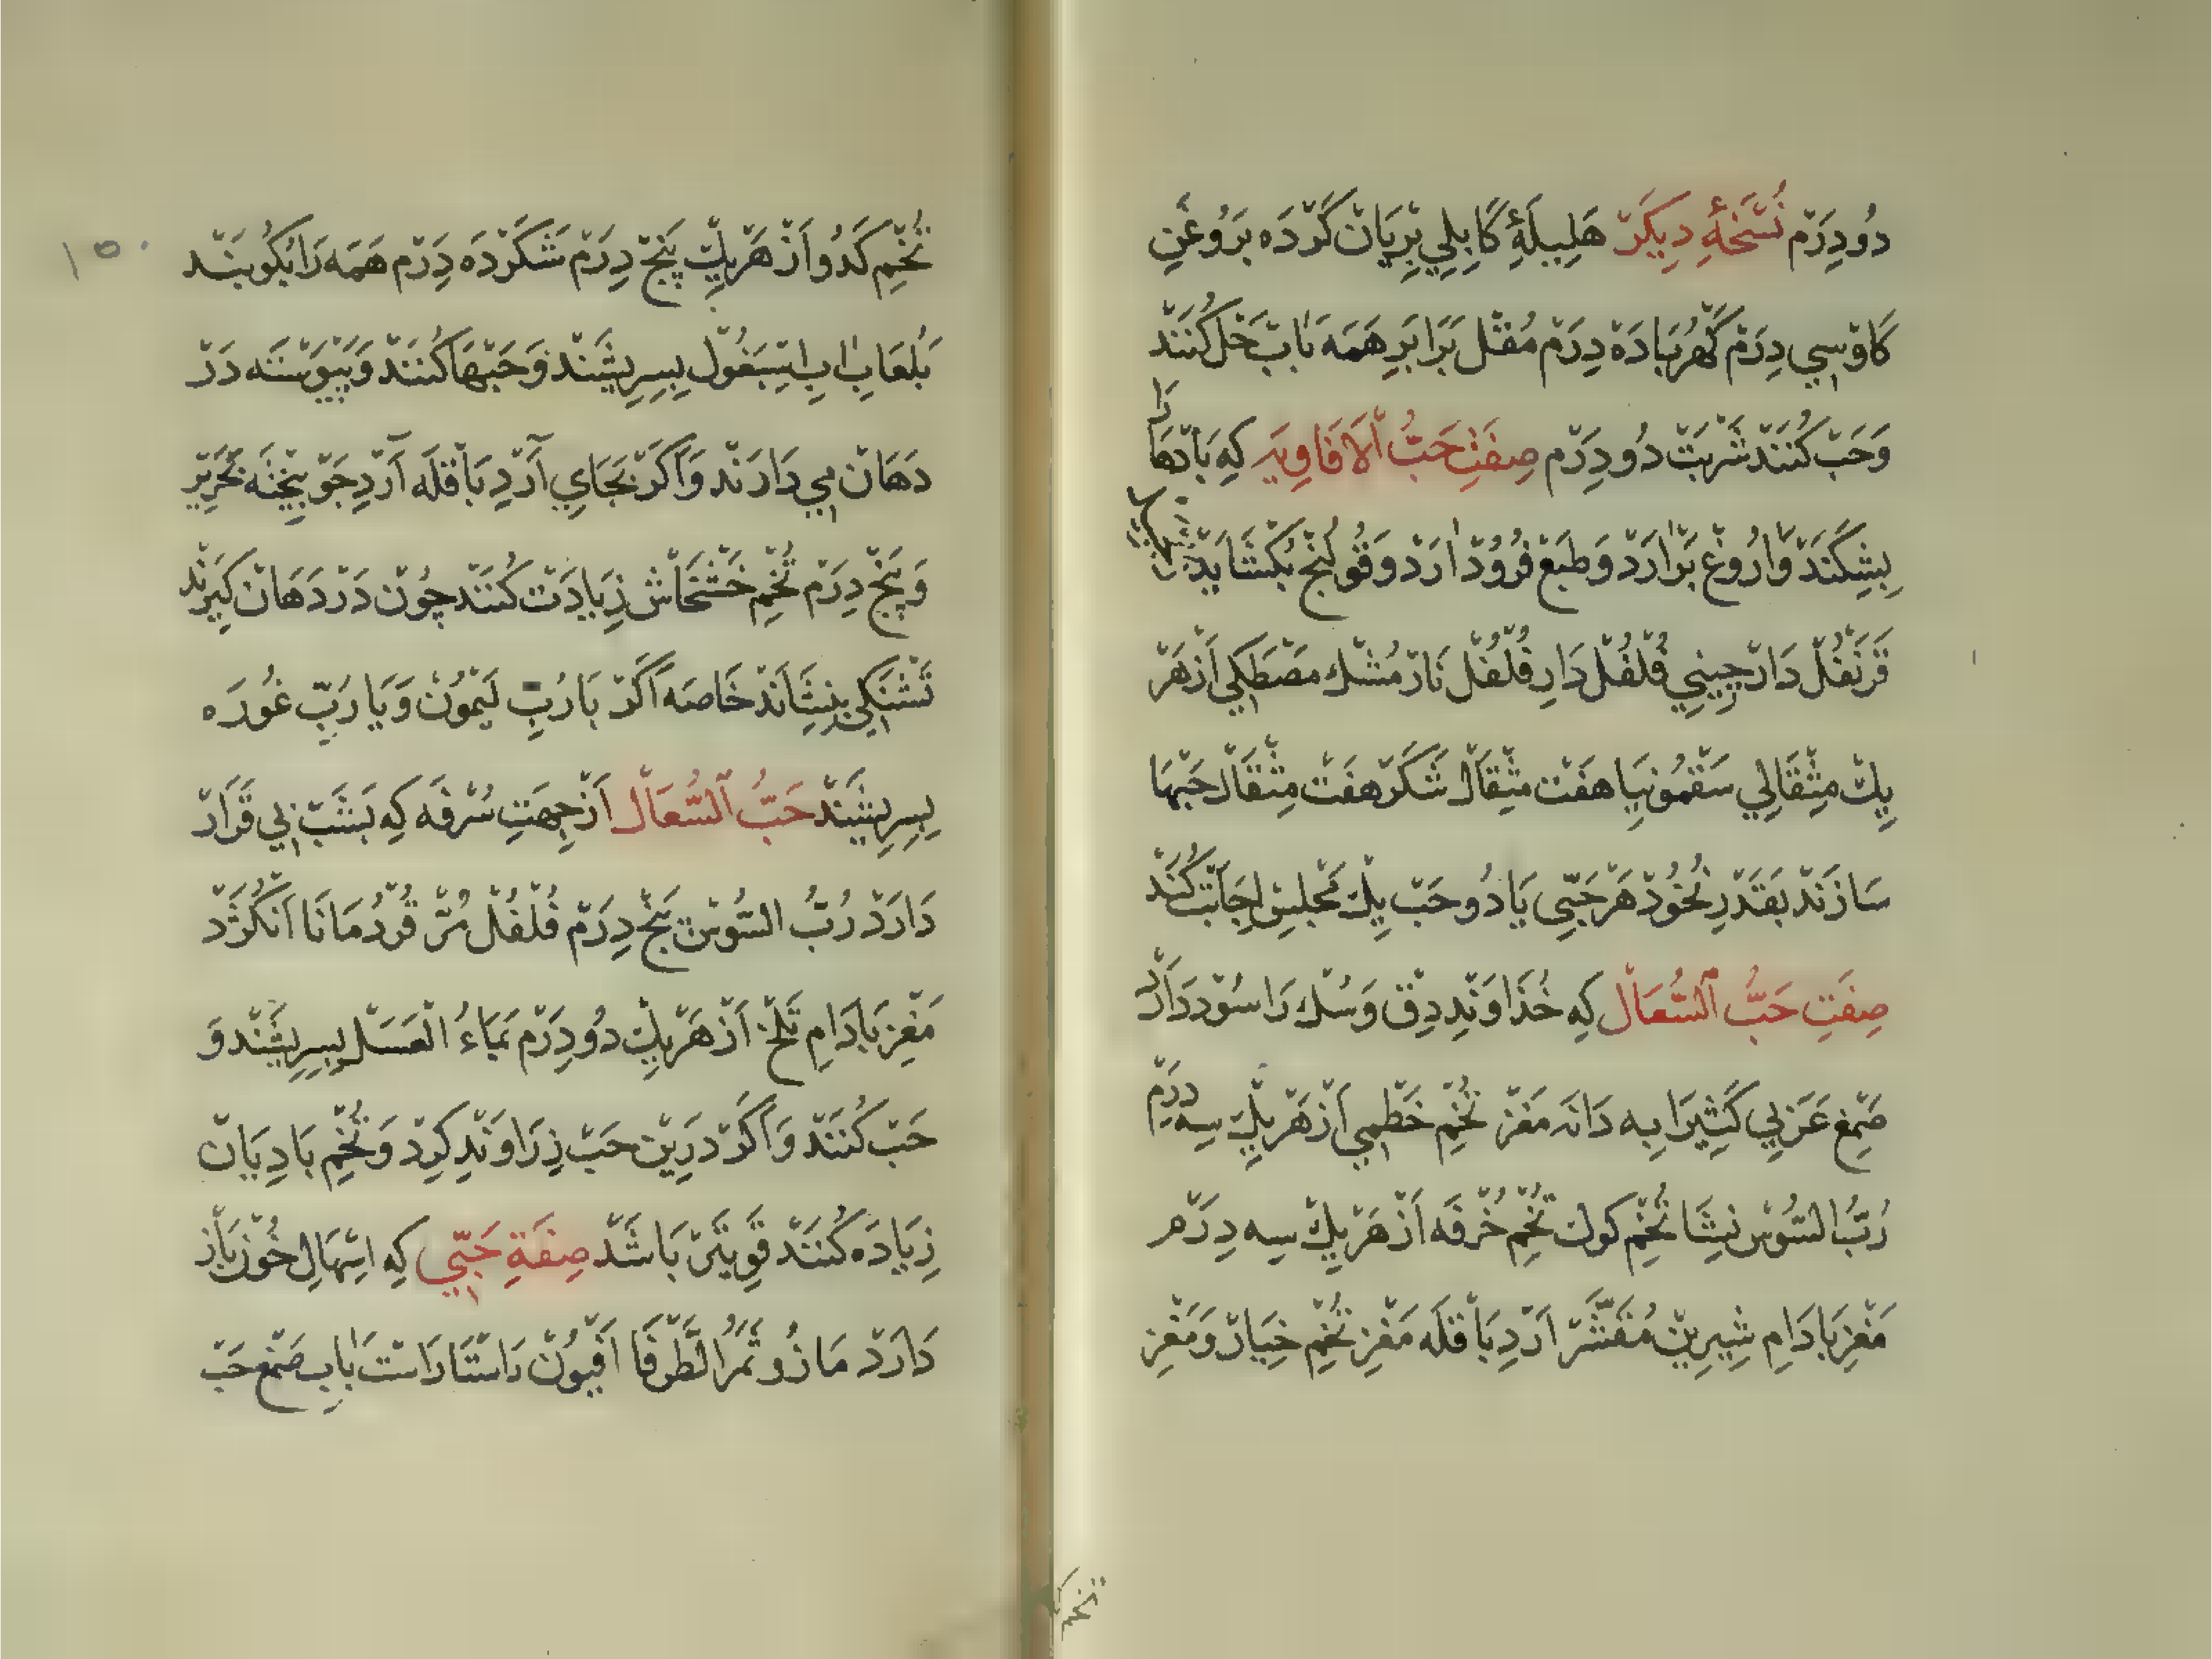 دُو دِرَم نُسْخَهٔ دِیکَرْ هَلِیلَهٔ کَابِلِي بِرْیَانْ کَرْدَه بَرُوغَنِ
کَاوْ سِي دِرَمْ کَهْرُبَا دَهْ دِرَمْ مُقْل بَرَابَرِ همَه بَابْ حَل کُنَنْد
وَحَبْ کُنَنْد شَرْبَتْ دُو دِرَمْ صِفَتِ حَبُّ اَلْافَاوِیَه کِه بَادْهَا رَا
بِشِکَنَدْ وَارُوغْ بَرْارَدْ وَطَبْع فُرُودْ ارَدْ وَقُولَنْجْ بُکشَایَدْ
قَرَنْفُلْ دَارْچِینِي فُلْفُلْ دَارِ فُلْفُلْ نَارْمُشْك مَصْطَکِي اَزْ هَرْ
یِكْ مِثْقَالِي سَقْمُونِیَا هَفَتْ مِثْقَالْ شَکَرْ هفَتْ مِثْقَالْ حَبْهَا
سَازَنْد بَقَدْرِ نُخُودْ هَرْ حَبِّی یَا دُو حَبْ یِكْ مَجْلِسْ اِجَابَتْ کُنَدْ
صِفَتِ حَبُّ اَلسُّعَالْ کِه خُذَاوَنْدِ دِقْ وَسُلْ رَا سُوْد دَارَدْ
صَمْغِ عَرَبِي کَثِیْرَا بِه دَانَه مَغْزْ تُخْمِ خَطْمِي اَزْ هَرْ یِكْ سِه دِرَمْ
رُبُّ السُّوْس نِشَا تُخْمِ کوك تُخْمِ خُرْفَه اَزْ هَرْ یِكْ سِه دِرَمْ
مَغْزِ بَادَامِ شِیرِینْ مُقَشَّرْ ارَدِ بَاقْلَه مَغْزِ تُخْمِ خِیَارْ وَمَغْزِ
تخم کد
۱۵۰
تُخْمِ کَدُو اَزْ هَرْ یِكْ پَنْجْ دِرَمْ شَکَرْ دَه دِرَمْ هَمَه رَا بُکُوبَنْد
بَلُعَابِ اِسْبَغُول بِسِرِیشَنْد وَحَبْهَا کُنَنْد وَپَیْوَسْتَه دَرْ
دَهَانْ مِي دَارَنْد وَاَکَرْ بَجَايِ آرْدِ بَاقْلَه آرْدِ جَوْ بِیْخْتَه بَحَرِیرْ
وَپَنْجْ دِرَمْ تُخْمِ خَشْخَاشْ زِیَادَتْ کُنَنْد چُونْ دَرْ دَهَانْ کِیرَنْد
تَشْنَکِي بِنِشَانَدْ خَاصَه اَکَرْ بَا رُبِّ لَیْمُونْ وَیَا رُبِّ غُورَه
بِسِرِیشَنْد حَبُّ اَلسُّعَالْ اَزْ جِهَتِ سُرْفَه کِه بَشَبْ بِي قَرَارْ
دَارَدْ رُبُّ السُّوْسْ پَنْجْ دِرَمْ فُلْفُلْ مُرّ قُرْدُمَانَا اَنْکُزَدْ
مَغْزِ بَادَامِ تَلْخ اَزْ هَرْ یِكْ دُو دِرَمْ بَمَاءُ الْعَسَلْ بِسِرِیشَنْد وَ
حَبْ کُنَنْد وَاَکَرْ دَرِیْن حَبْ زِرَاوَنْدِ کِرْد وَتُخْمِ بَادِیَانْ
زِیَادَه کُنَنْد قَوِیْتَرْ بَاشَدْ صِفَةِ حَبِّي کِه اِسْهَالِ خُونْ بَازْ
دَارَدْ مَازُو ثَمَرُ الطَّرْفَا اَفْیُونْ رَاسْتَا رَاسْت بَابِ صَمْغ حَبْ